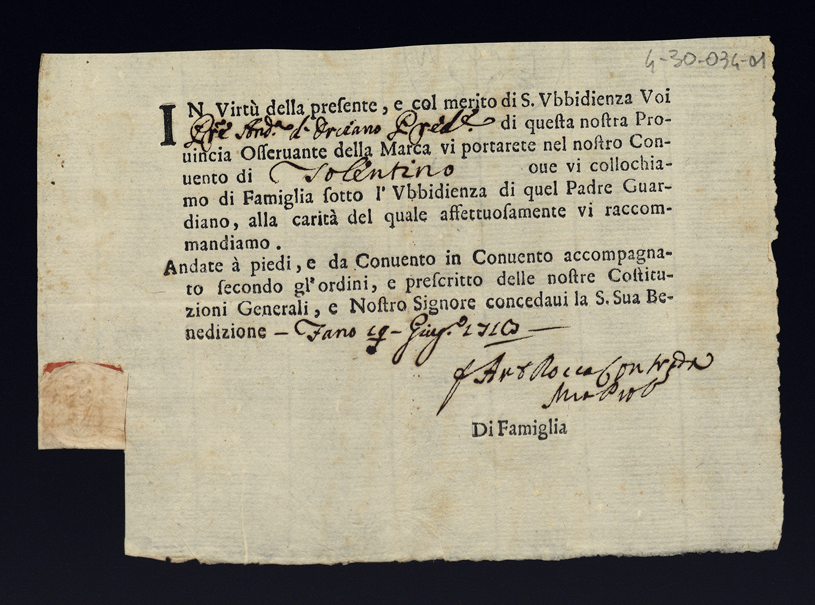 4-30-034-01
IN Virtù della presente, e col merito di S. Vbbidienza Voi
And.ª d'Orciano Pred.re di questa nostra Pro-
uincia Osseruante della Marca vi portarete nel nostro Con-
uento di Tolentino oue vi collochia-
mo di Famiglia sotto l'Vbbidienza di quel Padre Guar-
diano, alla carità del quale affettuosamente vi raccom-
mandiamo.
Andate à piedi, e da Conuento in Conuento accompagna-
to secondo gl'ordini, e prescritto delle nostre Costitu-
zioni Generali, e Nostro Signore concedaui la S. Sua Be-
nedizione — Fano 19 — Giug.º
f Ant Rocca Contrada
Mro Prole
Di Famiglia